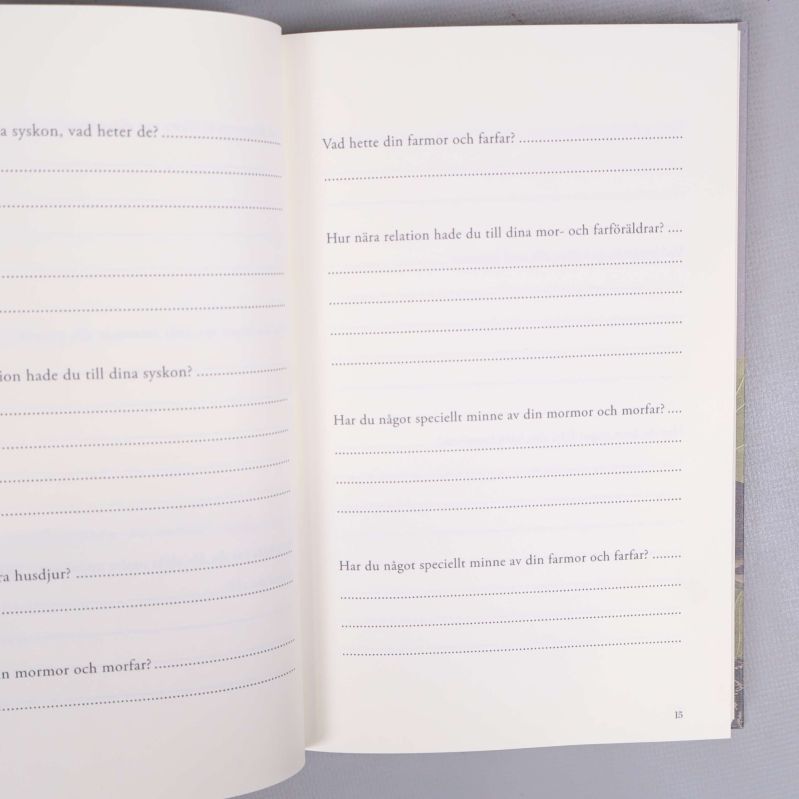 a syskon, vad heter de?
ion hade du till dina syskon?
ra husdjur?
n mormor och morfar?
Vad hette din farmor och farfar?
Hur nära relation hade du till dina mor- och farföräldrar?
Har du något speciellt minne av din mormor och morfar?
Har du något speciellt minne av din farmor och farfar?
15